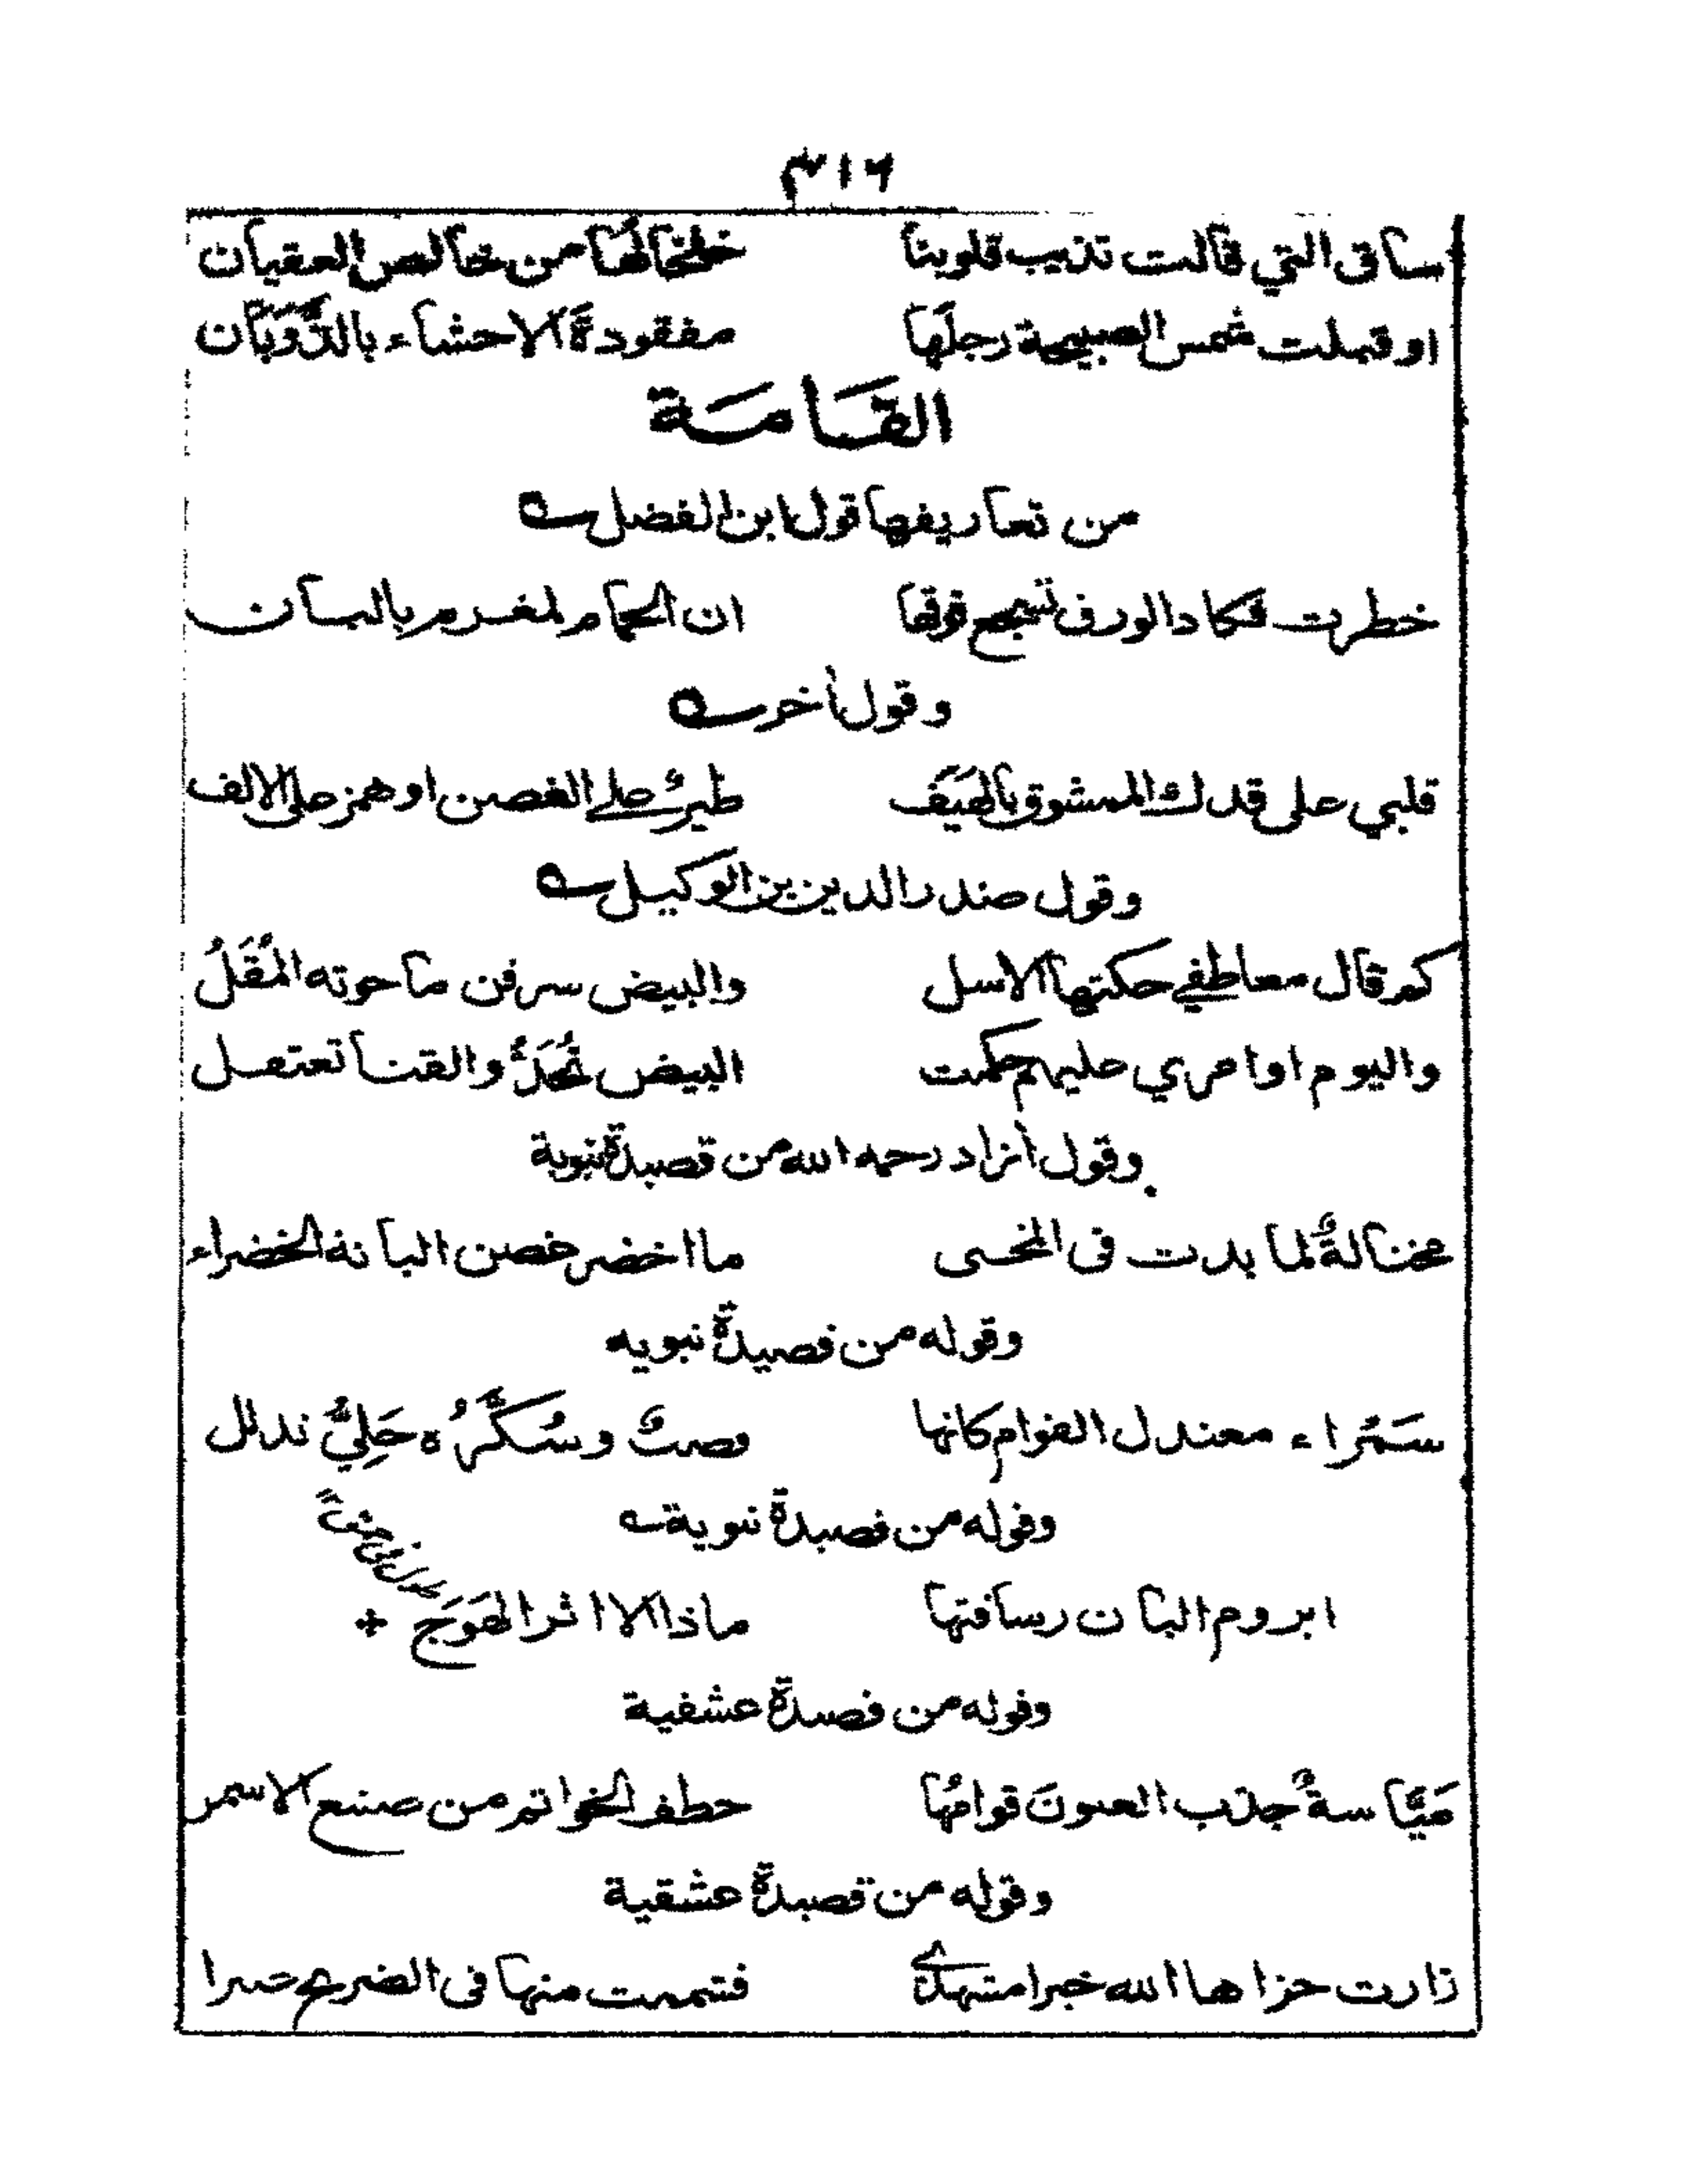 ٣١٦
ساقى التي قالت تذيب قلوبنا خلخالها من خالص العقيان
او قبلت شمس الصبيحة رجلَها مفقودةَ الاحشاء بالذَّوَبَان
القَامَة
من تعاريفها قول ابن الفضل
خطرت فكاد الورق تسجع فوقها ان الحمام لمغرم بالبان
وقول اخر
قلبي على قدك الممشوق بالهَيَف طيرٌ على الغصن او همز على الالف
وقول صدر الدين بن الوكيل
كم قال معاطفي حكتها الاسل والبيض سرقن ما حوته المُقَلُ
واليوم اوامري عليهم حكمت البيض تُحَدُّ والقنا تعتقل
وقول ازاد رحمه الله من قصيدة نبوية
مختالةٌ لما بدت فى المنحنى ما اخضر غصن البانة الخضراء
وقوله من قصيدة نبويه
سَمْراء معتدل القوام كانها قصبٌ وسُكَّرُه حَلِيُّ تدلل
وقوله من قصيدة نبوية
ايروم البان رساقتها ماذا الا اثر الهَوَج
وقوله من قصيدة عشقية
مَيَّاسةٌ جذب العيونَ قوامُها خطف الخواتم من صنيع الاسمر
وقوله من قصيدة عشقية
زارت جزاها الله خيرا مشهدى فشممت منها فى الضريح عبيرا